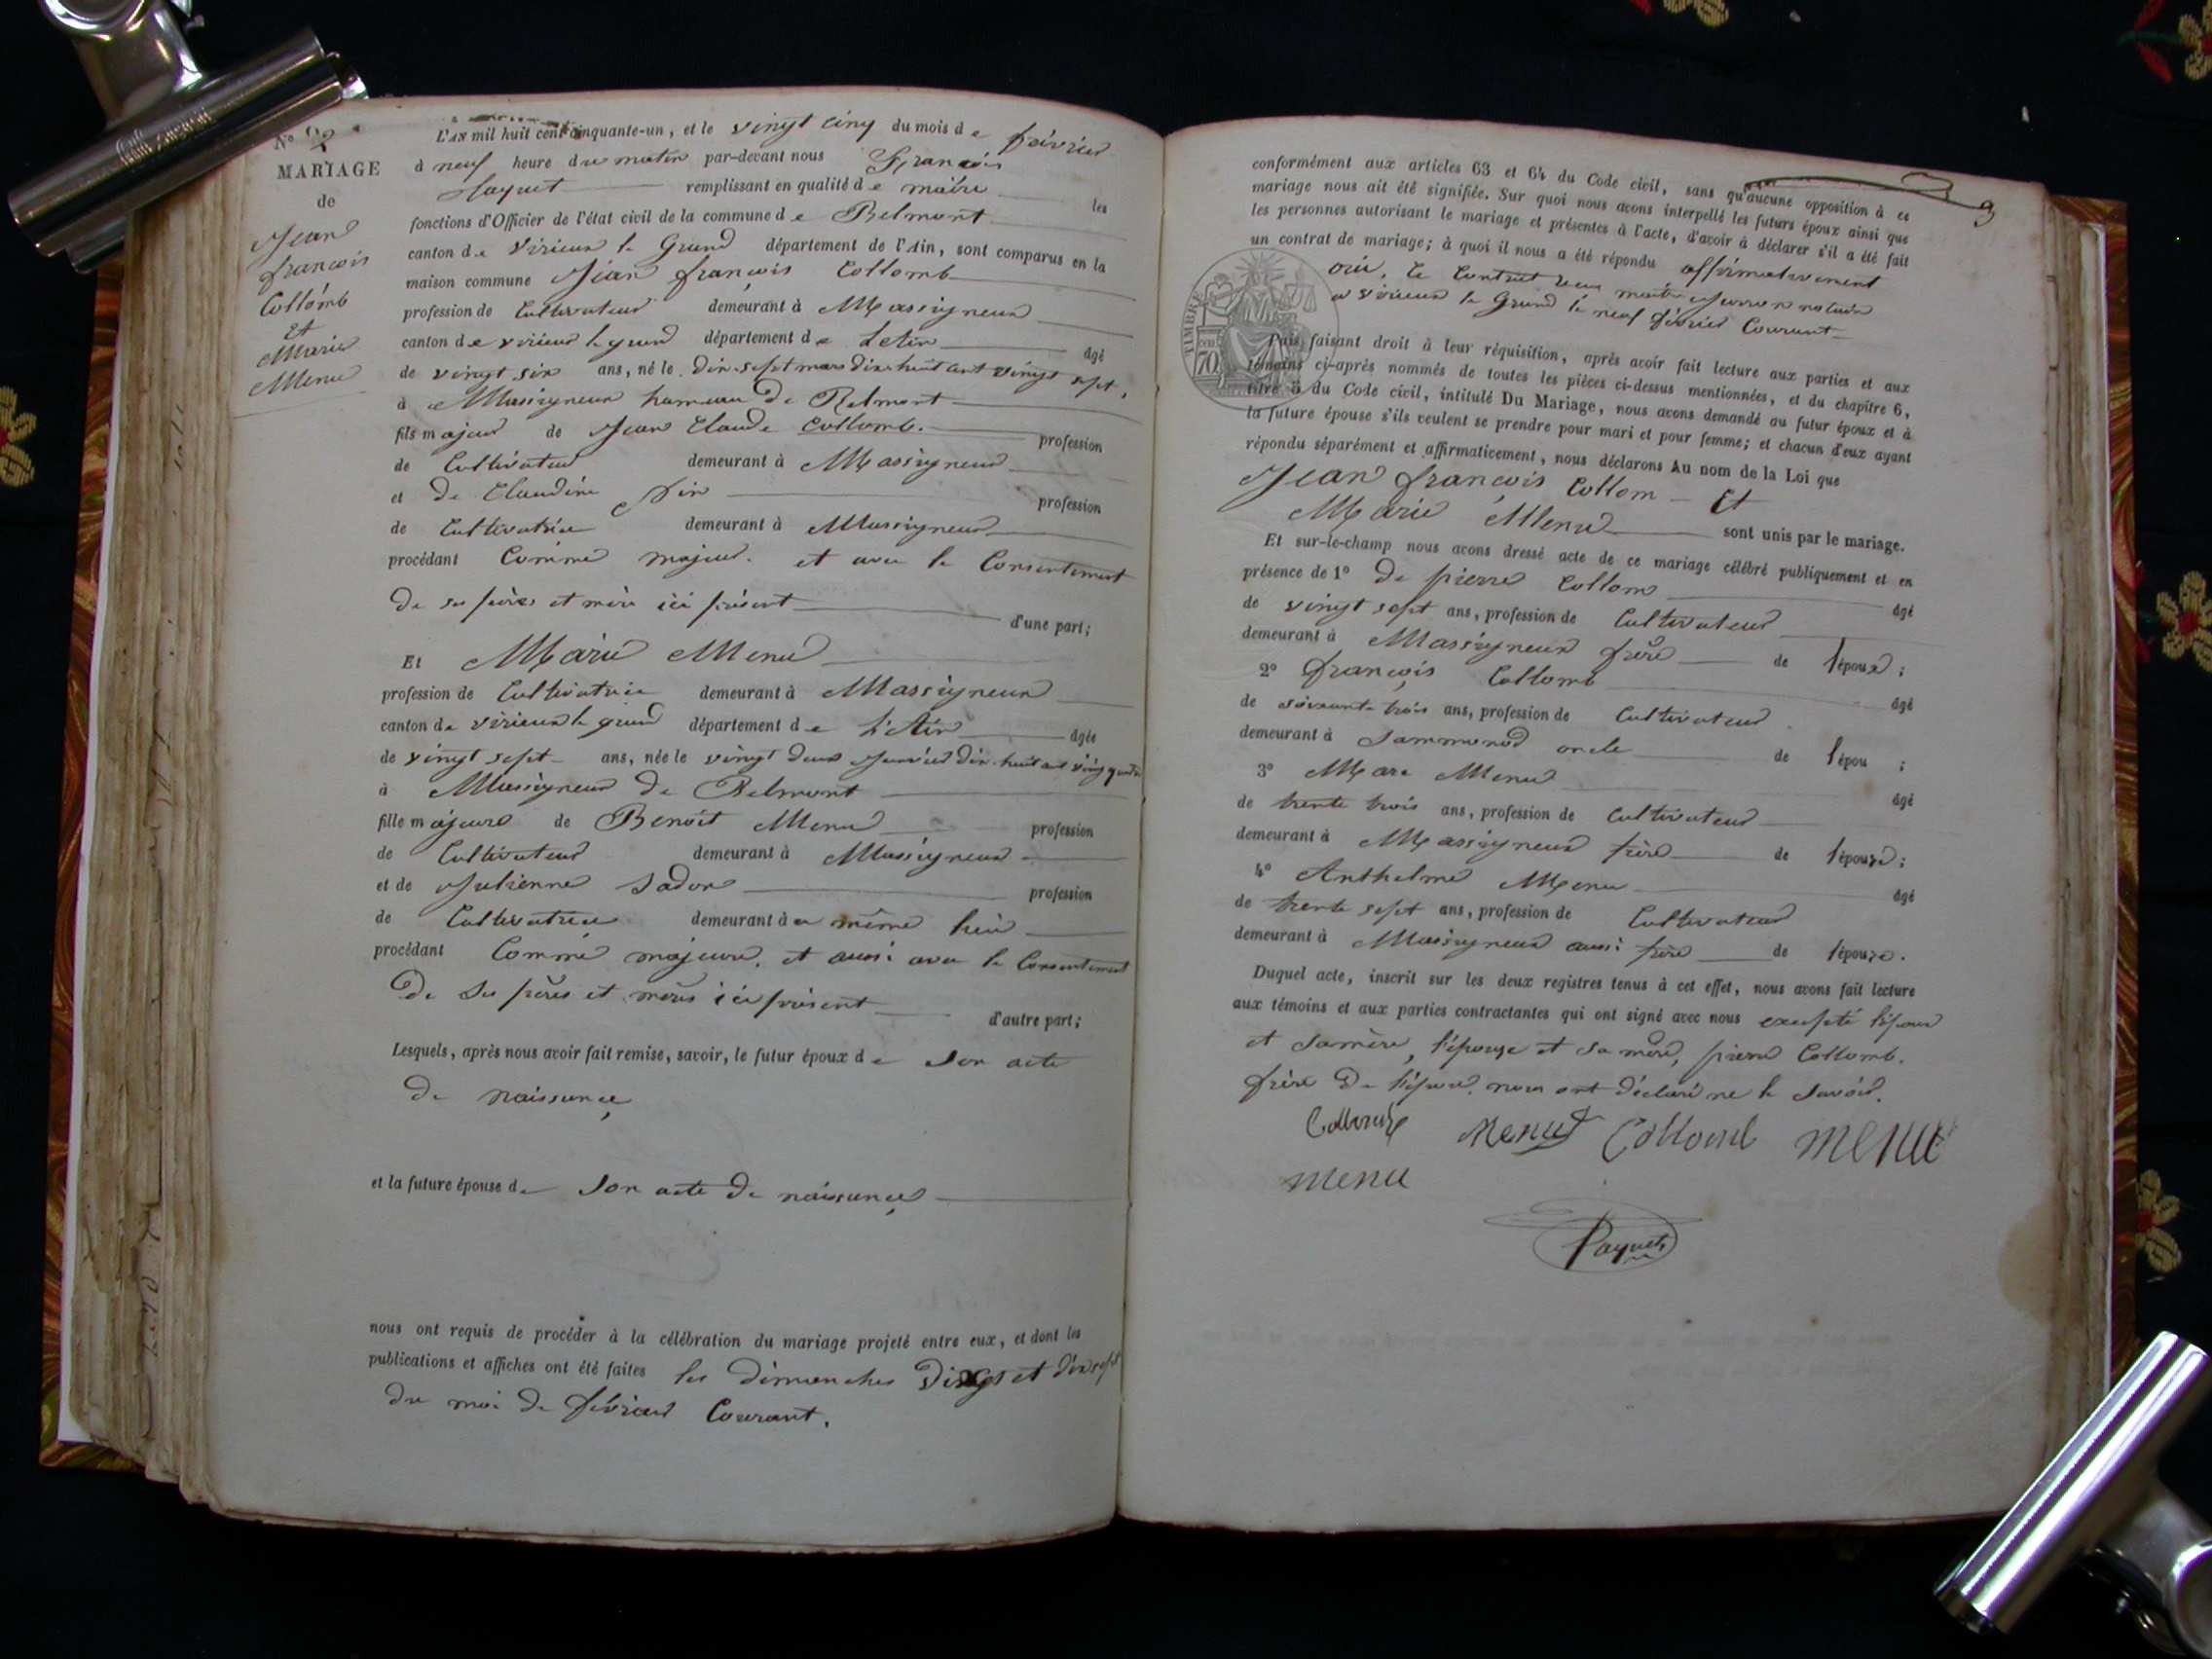 N° 2
MARIAGE
de
Jean
françois
Collomb
et
Marie
Menu
L'AN mil huit cent cinquante-un, et le vingt cinq du mois de février
à neuf heure du matin par-devant nous François
Payuet remplissant en qualité de maire les
fonctions d'Officier de l'état civil de la commune de Belmont
canton de virieux le Grand département de l'Ain, sont comparus en la
maison commune Jean françois Collomb
profession de Cultivateur demeurant à Massigneux
canton de virieux le grand département de Lein âgé
de vingt six ans, né le dix-sept mars dix-huit cent vingt sept,
à Massigneux hameau de Belmont
fils majeur de Jean Claude Collomb. profession
de Cultivateur demeurant à Massigneux
et de Claudine profession
de Cultivatrice demeurant à Massigneux
procédant Comme majeur. et avec le Consentement
de ses pères et mère ici présent d'une part;
Et Marie Menu
profession de Cultivatrice demeurant à Massigneux
canton de virieux le grand département de L'Ain âgée
de vingt sept ans, née le vingt deux Janvier dix-huit cent vingt quatre
à Massigneux de Belmont
fille majeure de Benoît Menu profession
de Cultivateur demeurant à Massigneux
et de Julienne profession
de Cultivatrice demeurant à a même lieu
procédant Comme majeure. et aussi avec le Consentement
de ses pères et mères ici présent d'autre part;
Lesquels, après nous avoir fait remise, savoir, le futur époux de son acte
de naissance
et la future épouse de son acte de naissance
nous ont requis de procéder à la célébration du mariage projeté entre eux, et dont les
publications et affiches ont été faites les dimanches et dix sept
du moi de février Courant.
conformément aux articles 63 et 64 du Code civil, sans qu'aucune opposition à ce
mariage nous ait été signifiée. Sur quoi nous avons interpellé les futurs époux ainsi que
les personnes autorisant le mariage et présentes à l'acte, d'avoir à déclarer s'il a été fait
un contrat de mariage; à quoi il nous a été répondu affirmativement
oui, le Contrat reçu maître notaire
a virieux le Grand le neuf février Courant
TIMBRE
70
Puis, faisant droit à leur réquisition, après avoir fait lecture aux parties et aux
témoins ci-après nommés de toutes les pièces ci-dessus mentionnées, et du chapitre 6,
titre 5 du Code civil, intitulé Du Mariage, nous avons demandé au futur époux et à
la future épouse s'ils veulent se prendre pour mari et pour femme; et chacun d'eux ayant
répondu séparément et affirmativement, nous déclarons Au nom de la Loi que
Jean françois Collom Et
Marie Menu sont unis par le mariage.
Et sur-le-champ nous avons dressé acte de ce mariage célébré publiquement et en
présence de 1° De pierre Collom âgé
de vingt sept ans, profession de Cultivateur
demeurant à Massigneux frère de l'époux;
2° françois Collomb âgé
de soixante trois ans, profession de Cultivateur
demeurant à Sammonod oncle de l'épou;
3° Marc Menu âgé
de trente trois ans, profession de Cultivateur
demeurant à Massigneux frère de l'épouse;
4° Anthelme Menu âgé
de trente sept ans, profession de Cultivateur
demeurant à Massigneux aussi frère de l'épouse.
Duquel acte, inscrit sur les deux registres tenus à cet effet, nous avons fait lecture
aux témoins et aux parties contractantes qui ont signé avec nous excepté l'époux
et sa mère, l'épouse et sa mère, pierre Collomb.
frère de l'époux. nous ont déclaré ne le savoir.
Collomb Menu Collomb menu
menu
Payuet